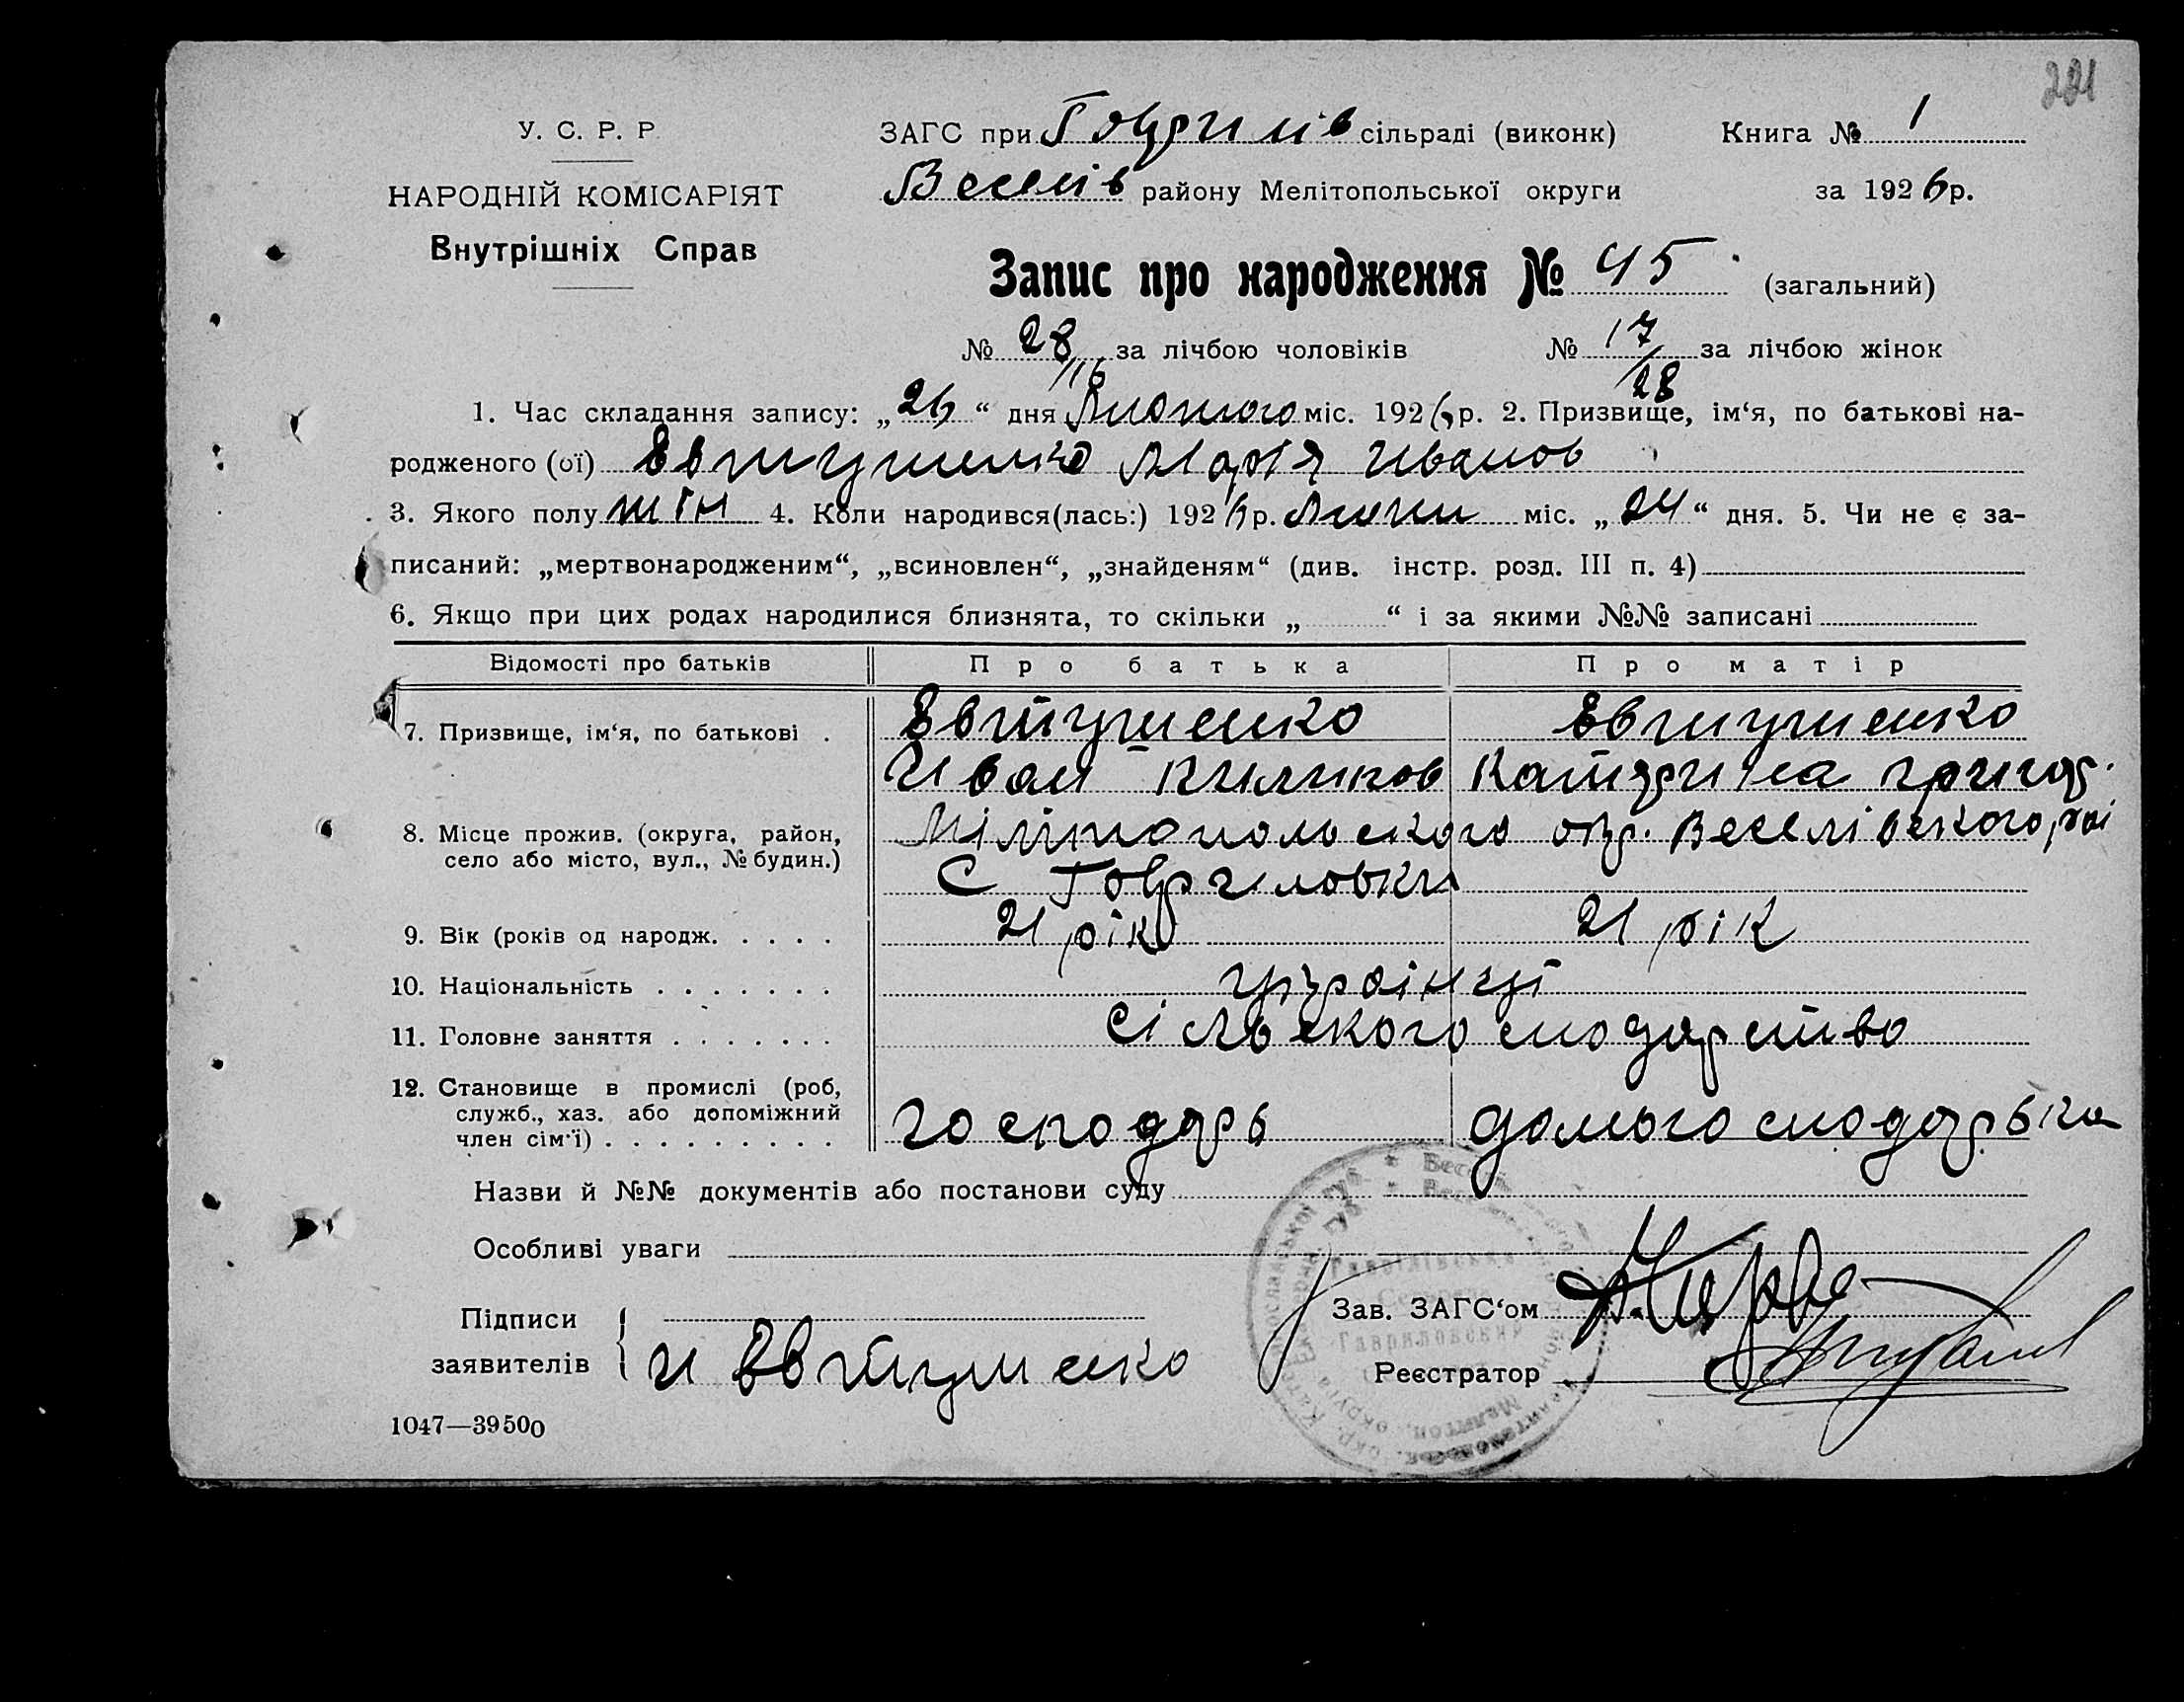 221
У. С. Р. Р
НАРОДНІЙ КОМІСАРІЯТ
Внутрішніх Справ
ЗАГС при Гаврилів сільраді (виконк)
Книга № 1
Веселів району Мелітопольської округи
за 1926 р.
Запис про народження № 45 (загальний)
№ 28 за лічбою чоловіків № 17 за лічбою жінок
1. Час складання запису: „26“ дня Лютого міс. 1926 р. 2. Призвище, ім‘я, по батькові на-
родженого (ої) Евтушенко Марія Иванов
3. Якого полу жін 4. Коли народився(лась:) 1926 р. Лютий міс. „24“ дня. 5. Чи не є за-
писаний: „мертвонародженим“, „всиновлен“, „знайденям“ (див. інстр. розд. III п. 4)
6. Якщо при цих родах народилися близнята, то скільки „ “ і за якими №№ записані
Відомості про батьків Про батька Про матір
7. Призвище, ім‘я, по батькові . Евтушенко Евтушенко
Иван Катерина григор.
8. Місце прожив. (округа, район, Мілітопольского окр. Веселівского рай
село або місто, вул., № будин.)
С Гавриловки
9. Вік (років од народж. . . . . 21 рік 21 рік
10. Національність . . . . . . . українці
11. Головне заняття . . . . . . . сільского сподарство
12. Становище в промислі (роб,
служб., хаз. або допоміжний господарь домогосподарька
член сім‘ї) . . . . . . . . .
Назви й №№ документів або постанови суду
Особливі уваги
Підписи
заявителів и Евтушенко
Зав. ЗАГС‘ом
Реєстратор
1047—39500